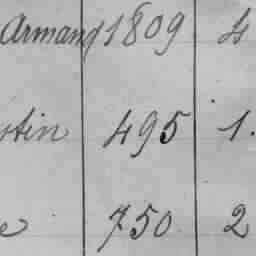 Armand 1809 4
stin 495 1.
e 750 2